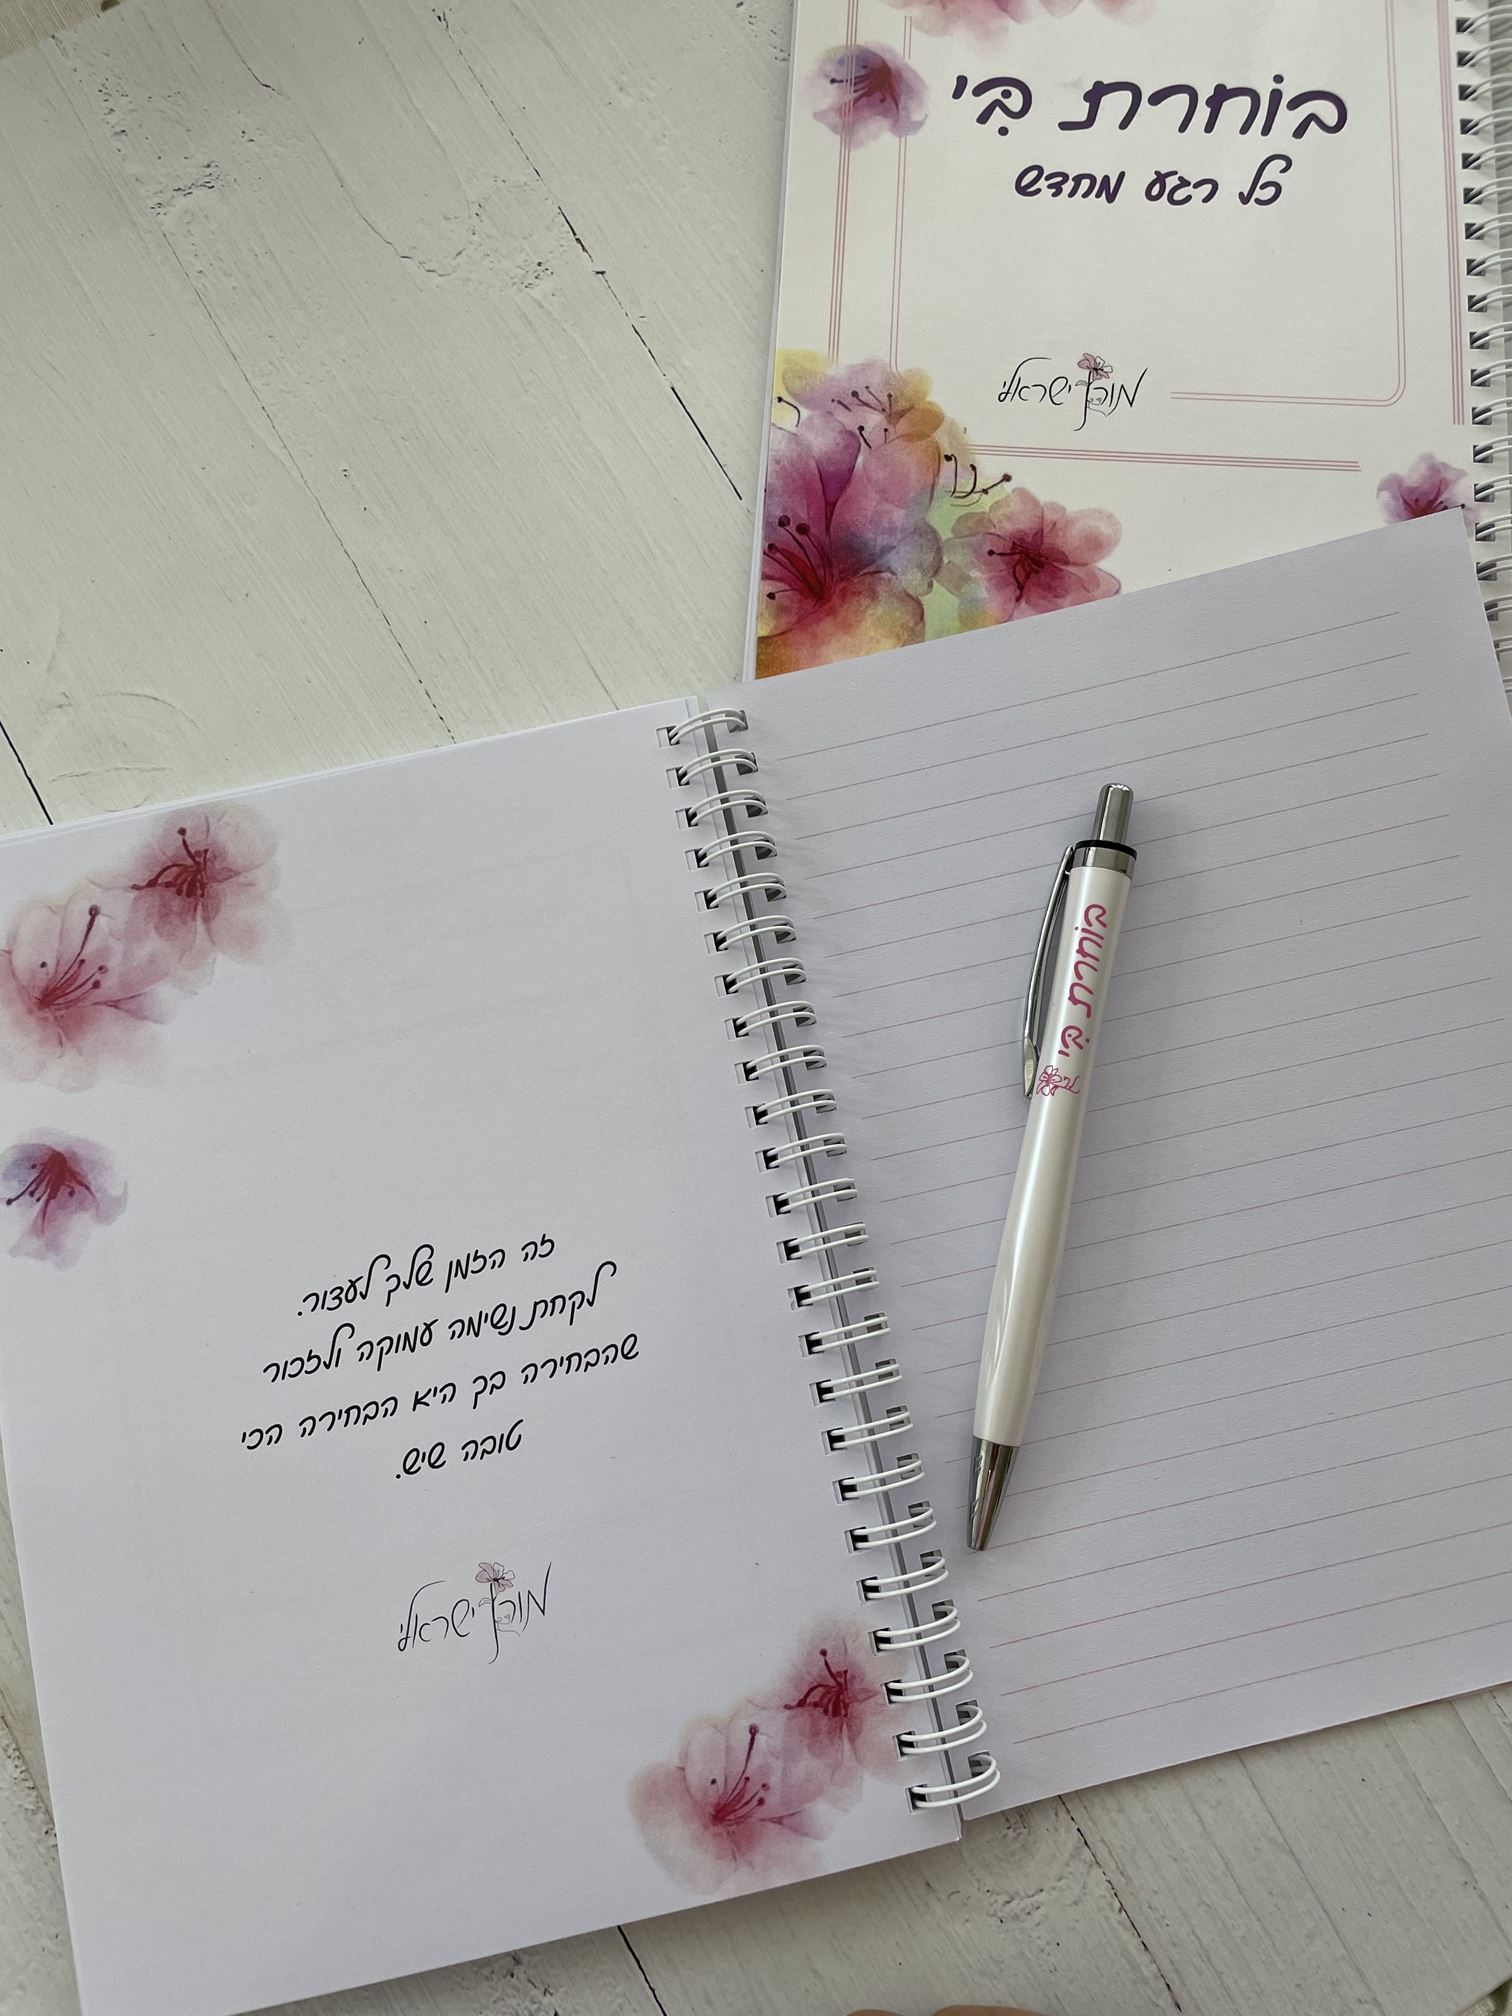 בוֹחרת בִּי
כל רגע מחדש
מורן ישראלי
בוֹחרת בִּי
זה הזמן שלך לעצור.
לקחת נשימה עמוקה ולזכור
שהבחירה בך היא הבחירה הכי
טובה שיש.
מורן ישראלי